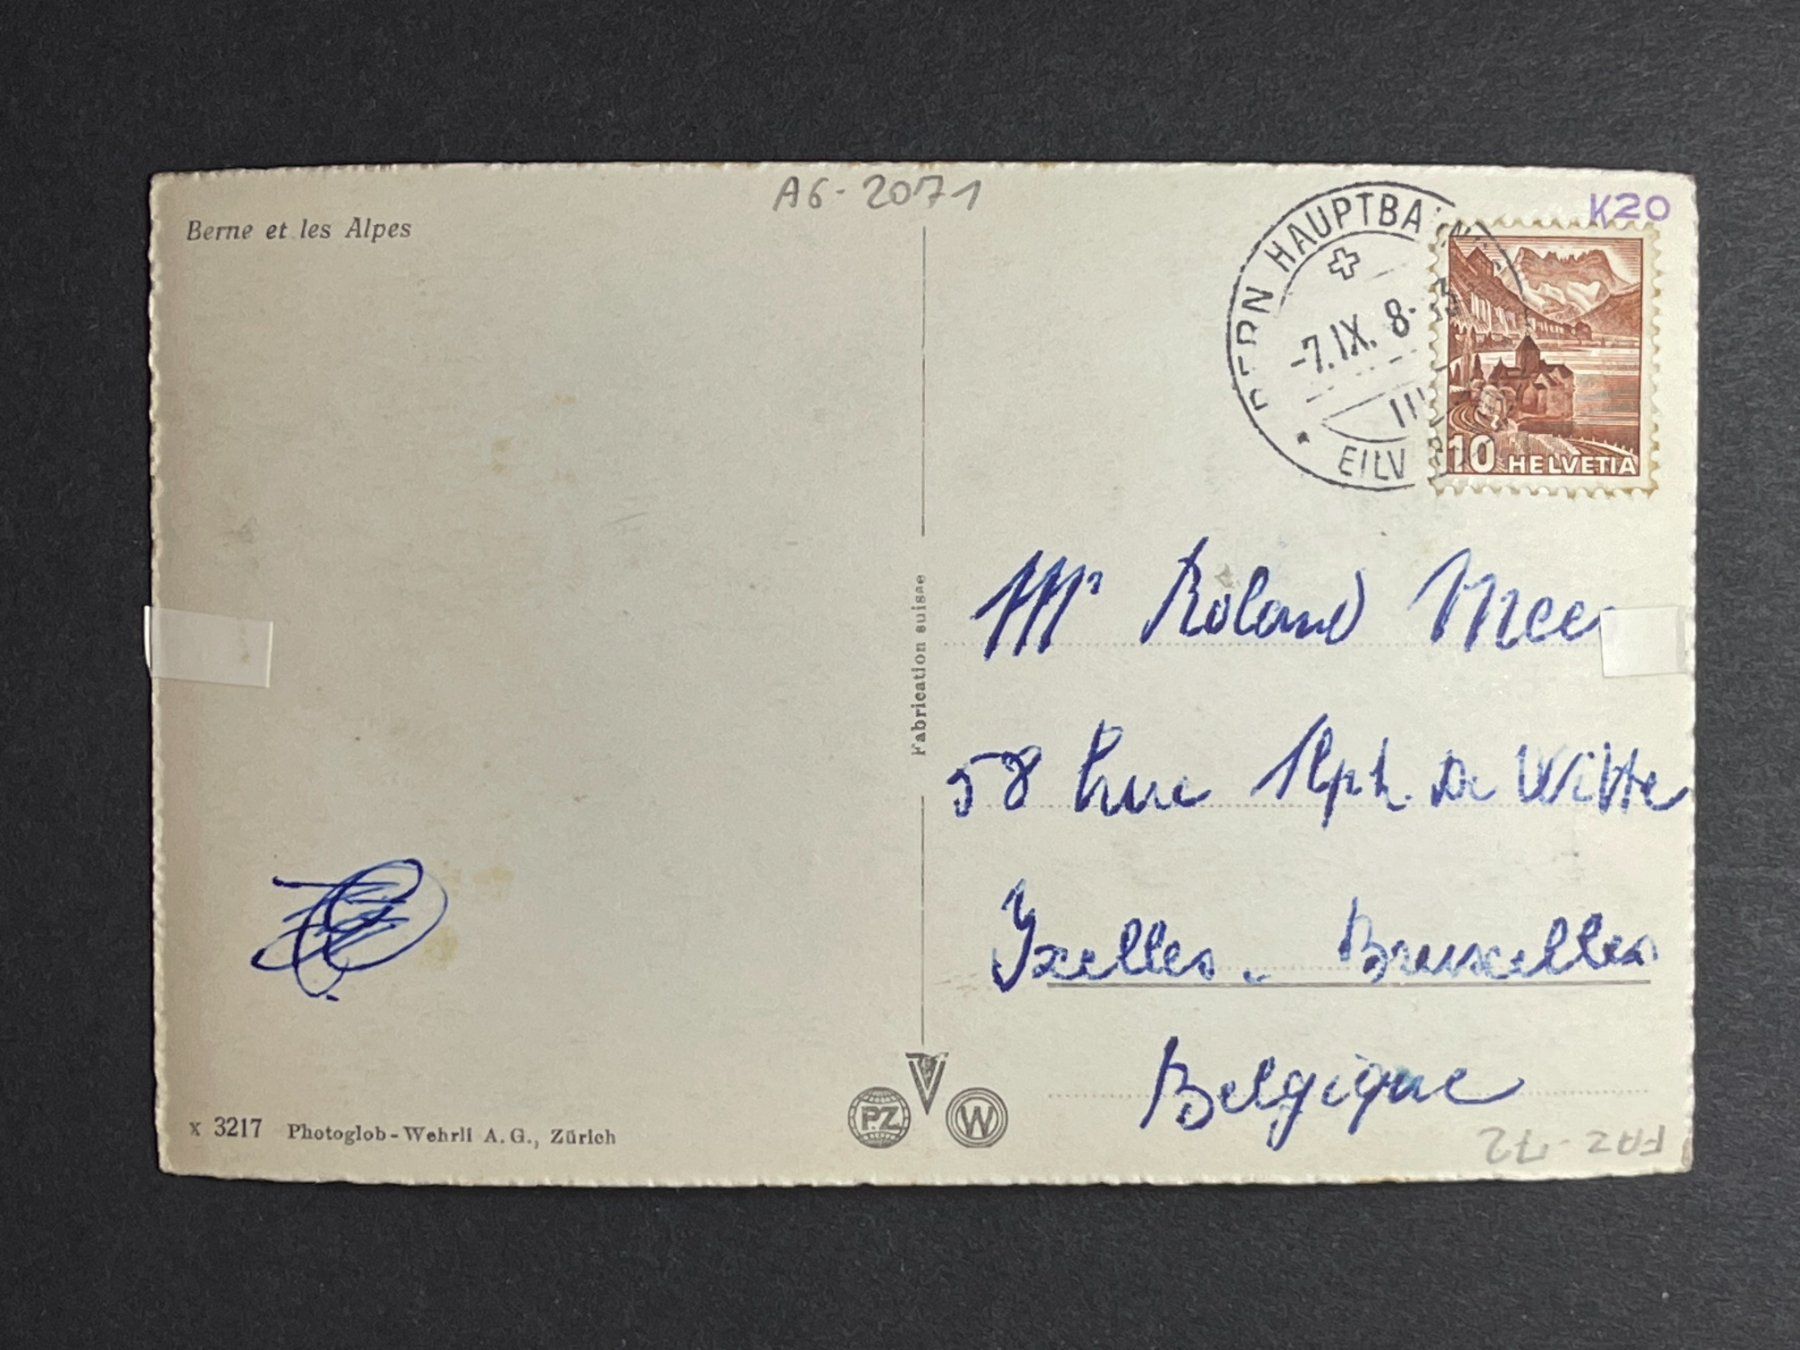 A6-2071
K20
Berne et les Alpes
HAUPTBA
-7.IX. 8-
EILV
10 HELVETIA
Fabrication suisse
Mr Roland
58 Rue Alph. De Witte
Ixelles. Bruxelles
Belgique
x 3217 Photoglob-Wehrli A.G., Zürich
PZ
W
FAZ-72